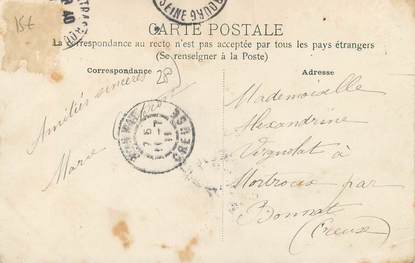 15€
CARTE POSTALE
La correspondance au recto n'est pas acceptée par tous les pays étrangers
(Se renseigner à la Poste)
Correspondance
Adresse
Amitiés sincères
Mademoiselle
Alexandrine
à
Mortroux par
Bonnat
(Creuse)
CREUSE